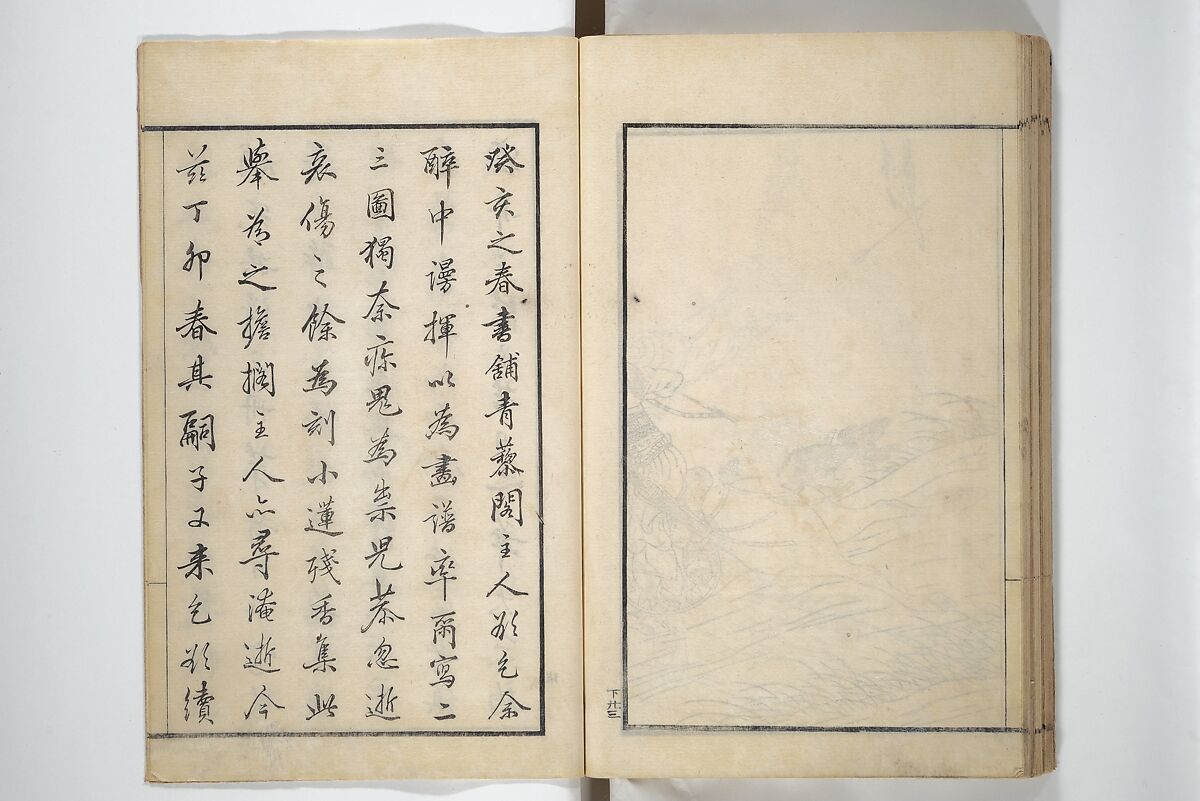 癸亥之春書舖青藜閣主人欲乞余
醉中謾揮以為畫譜率爾寫二
三圖獨奈疢鬼為祟児恭忽逝
哀傷之餘為刻小蓮殘香集此
舉為之擔擱主人亦尋淹逝今
茲丁卯春其嗣子又来乞欲續
下廾三